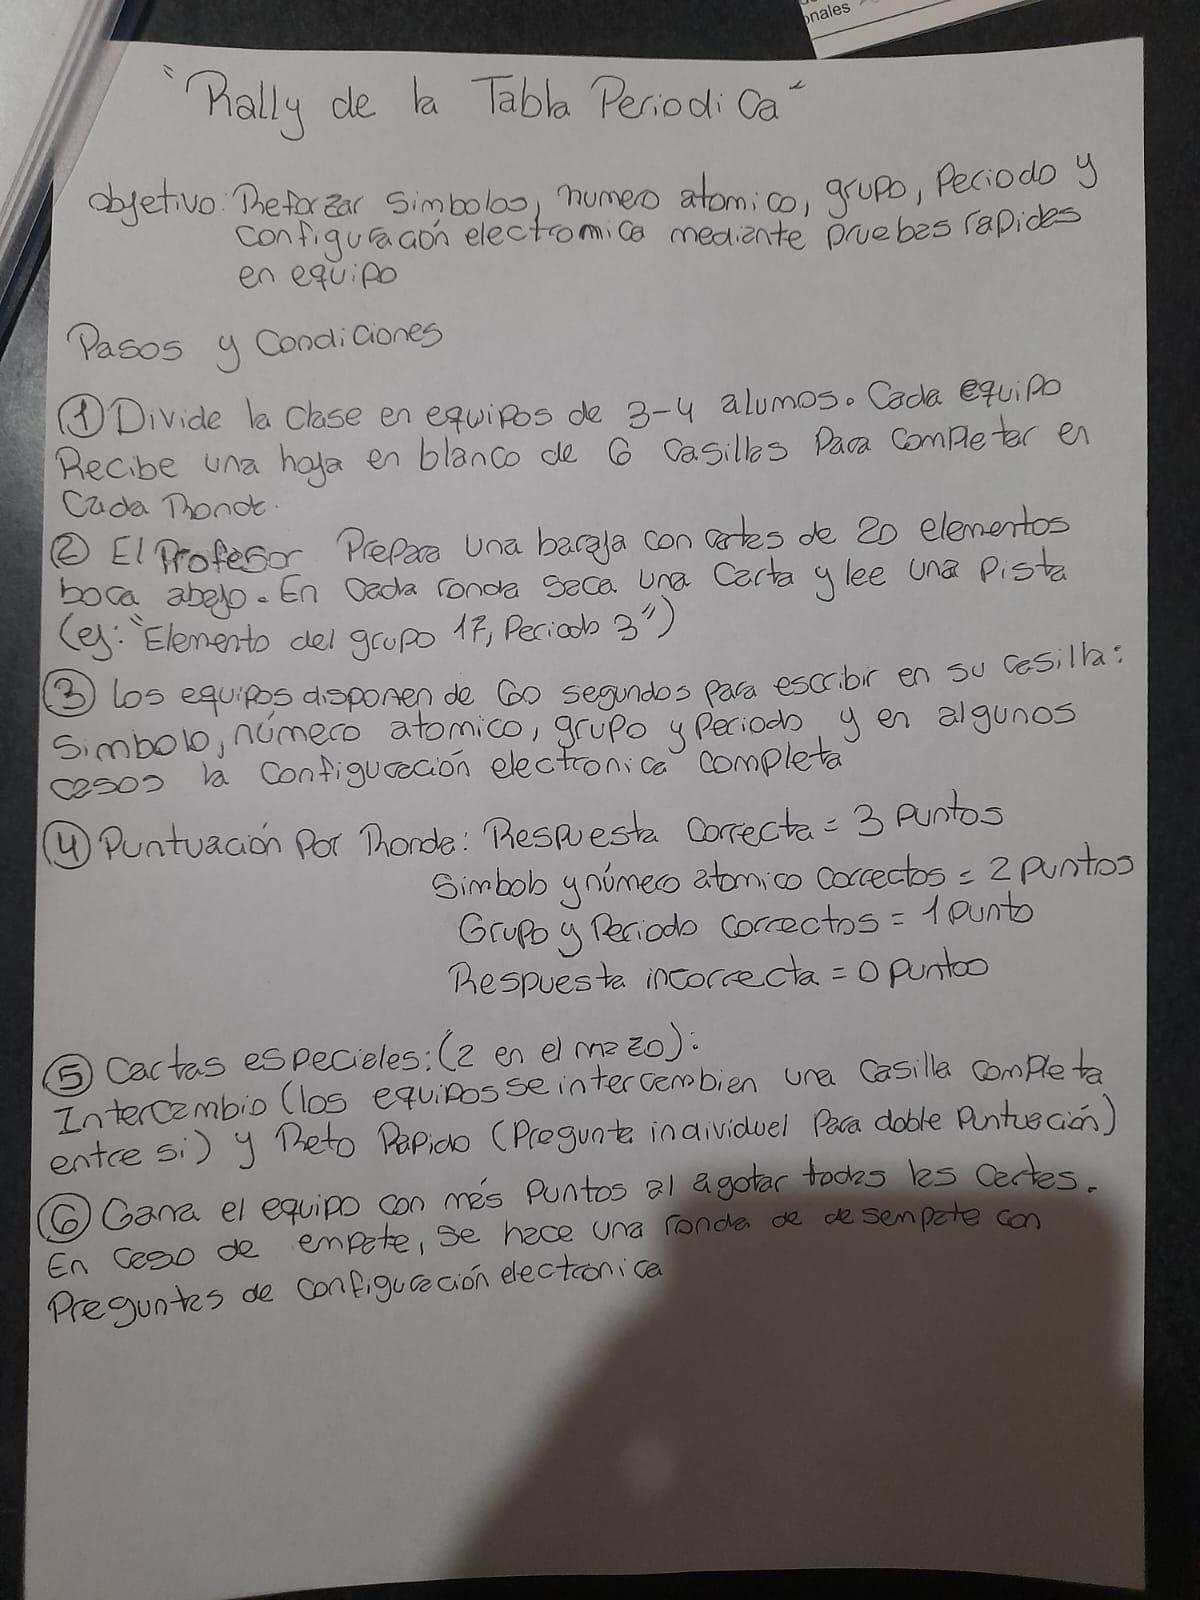 onales
"Rally de la Tabla Periodica"
objetivo: Reforzar Simbolos, numero atomico, grupo, Periodo y
configuración electromica mediante pruebas rapidas
en equipo
Pasos y Condiciones
① Divide la Clase en equipos de 3-4 alumos. Cada equipo
Recibe una hoja en blanco de 6 Casillas Para Completar en
Cada Ronda.
② El Profesor Prepara una baraja con cartas de 20 elementos
boca abajo. En Cada ronda Saca una Carta y lee una Pista
(ej: "Elemento del grupo 17, Periodo 3")
③ los equipos disponen de 60 segundos para escribir en su casilla:
Simbolo, número atomico, grupo y Periodo y en algunos
casos la Configuración electronica completa
④ Puntuación Por Ronda: Respuesta Correcta = 3 puntos
Simbolo y número atomico Correctos = 2 puntos
Grupo y Periodo Correctos = 1 punto
Respuesta incorrecta = 0 puntos
⑤ Cartas especiales: (2 en el mazo):
Intercambio (los equipos se intercambien una Casilla Completa
entre si) y Reto Rapido (Pregunta individuel Para doble Puntuación)
⑥ Gana el equipo con más Puntos al agotar todas las Cartas.
En Caso de empate, Se hace una ronda de desempate con
Preguntas de Configuración electronica